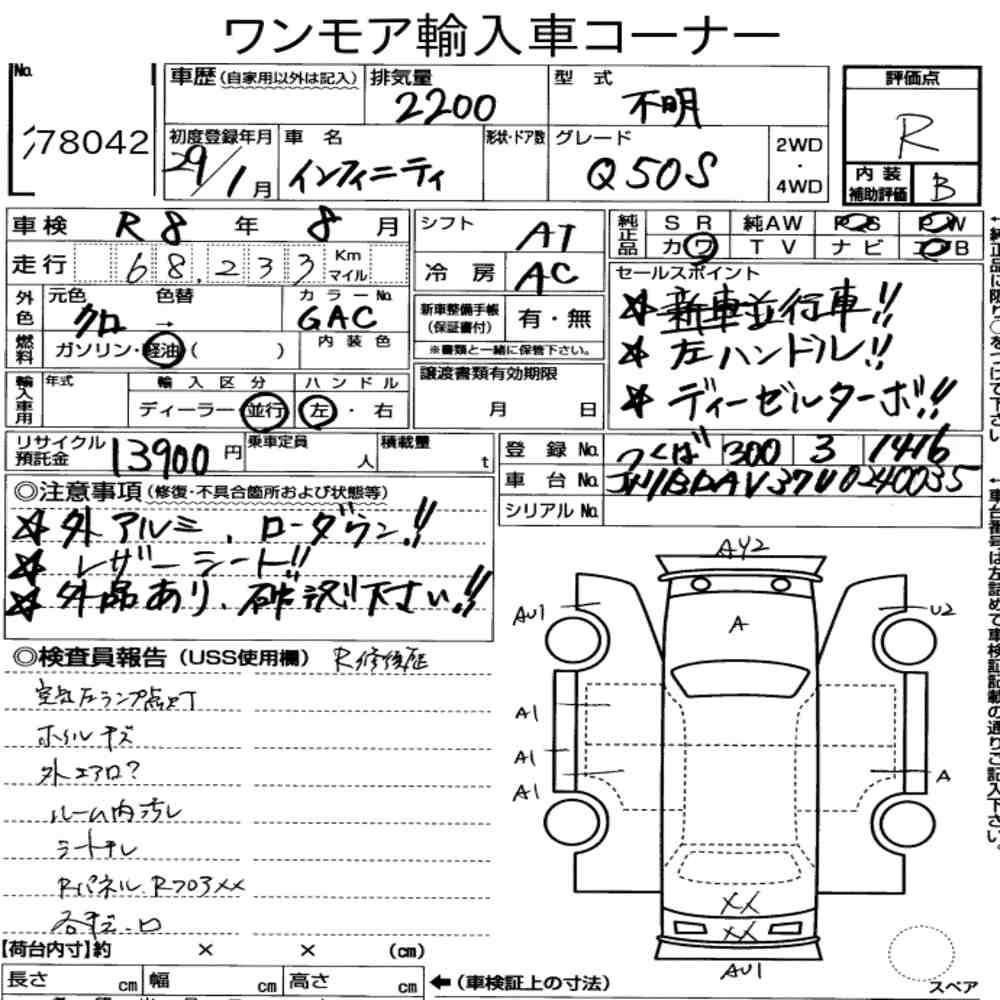 ワンモア輸入車コーナー
No.
78042
車歴 (自家用以外は記入)
排気量
2200
型式
不明
評価点
R
初度登録年月
29/1月
車名
インフィニティ
形状・ドア数
グレード
Q50S
2WD
・
4WD
内装
補助評価
B
車検 R8年 8月
走行 68,233 Km
マイル
外色
元色
クロ
→
色替
カラーNo.
GAC
燃料
ガソリン・軽油 ( )
内装色
輸入車用
年式
輸入区分
ハンドル
ディーラー・並行
左・右
シフト
AT
冷房
AC
新車整備手帳
(保証書付)
有・無
※書類と一緒に保管下さい。
譲渡書類有効期限
月 日
純正品
SR 純AW PS PW
カワ TV ナビ エアB
セールスポイント
☆ 新車並行車!!
☆ 左ハンドル!!
☆ ディーゼルターボ!!
リサイクル
預託金
13900円
乗車定員
人
積載量
t
登録No. つくば 300 3 1416
車台No. JN1BDAV37U0240035
シリアルNo.
◎注意事項 (修復・不具合箇所および状態等)
☆ 外アルミ、ローダウン!!
☆ レザーシート!!
☆ 外品あり、確認下さい!!
◎検査員報告 (USS使用欄) R修復歴
空気圧ランプ点灯
ホイルキズ
外エアロ?
ルーム内汚レ
シートスレ
Rパネル、RフロアXX
AY2
A
AU1
U2
A1
A1
A1
A
XX
XX
AU1
スペア
【荷台内寸】約 × × (cm)
長さ cm 幅 cm 高さ cm
← (車検証上の寸法)
←純正品に限り○をつけて下さい。
←車台番号は左詰めで車検証記載の通りご記入下さい。